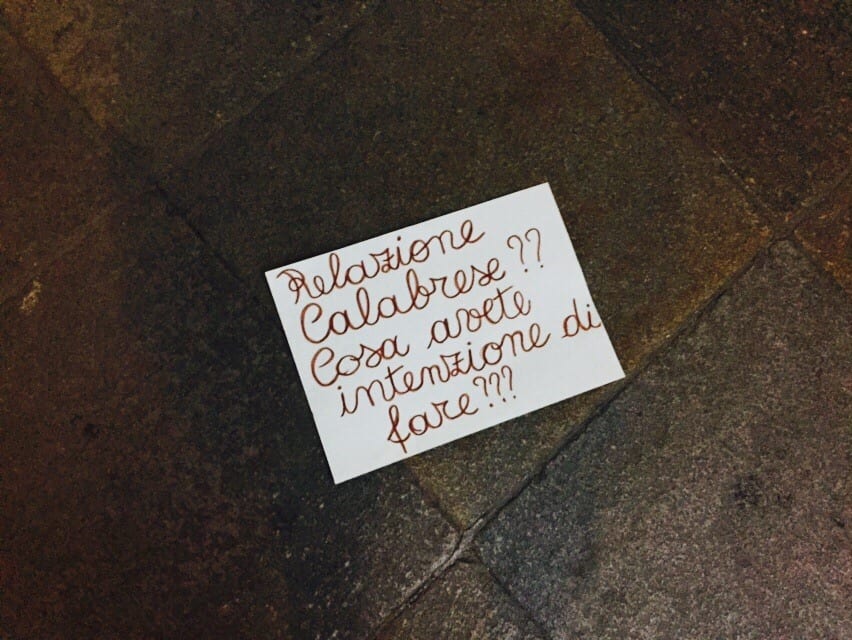 Relazione
Calabrese ??
Cosa avete
intenzione di
fare???